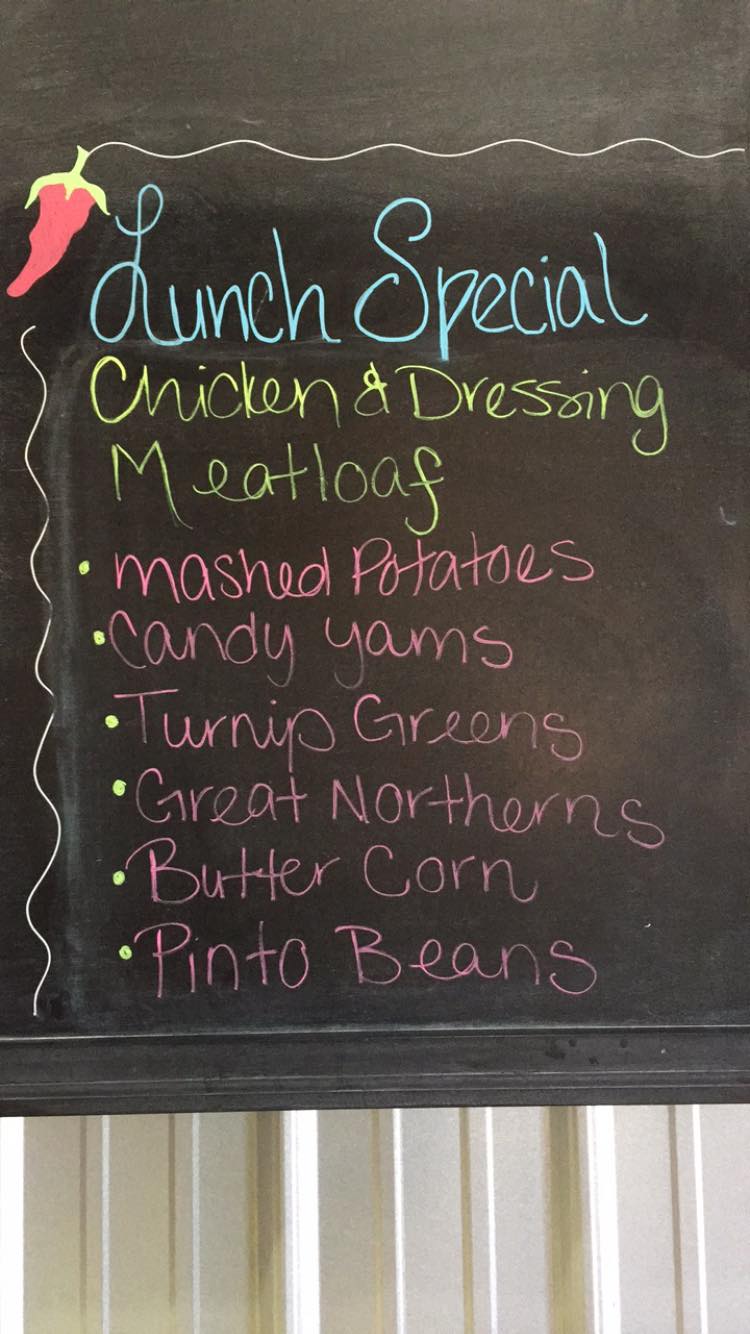 Lunch Special
Chicken & Dressing
Meatloaf
• mashed Potatoes
• Candy yams
• Turnip Greens
• Great Northerns
• Butter Corn
• Pinto Beans